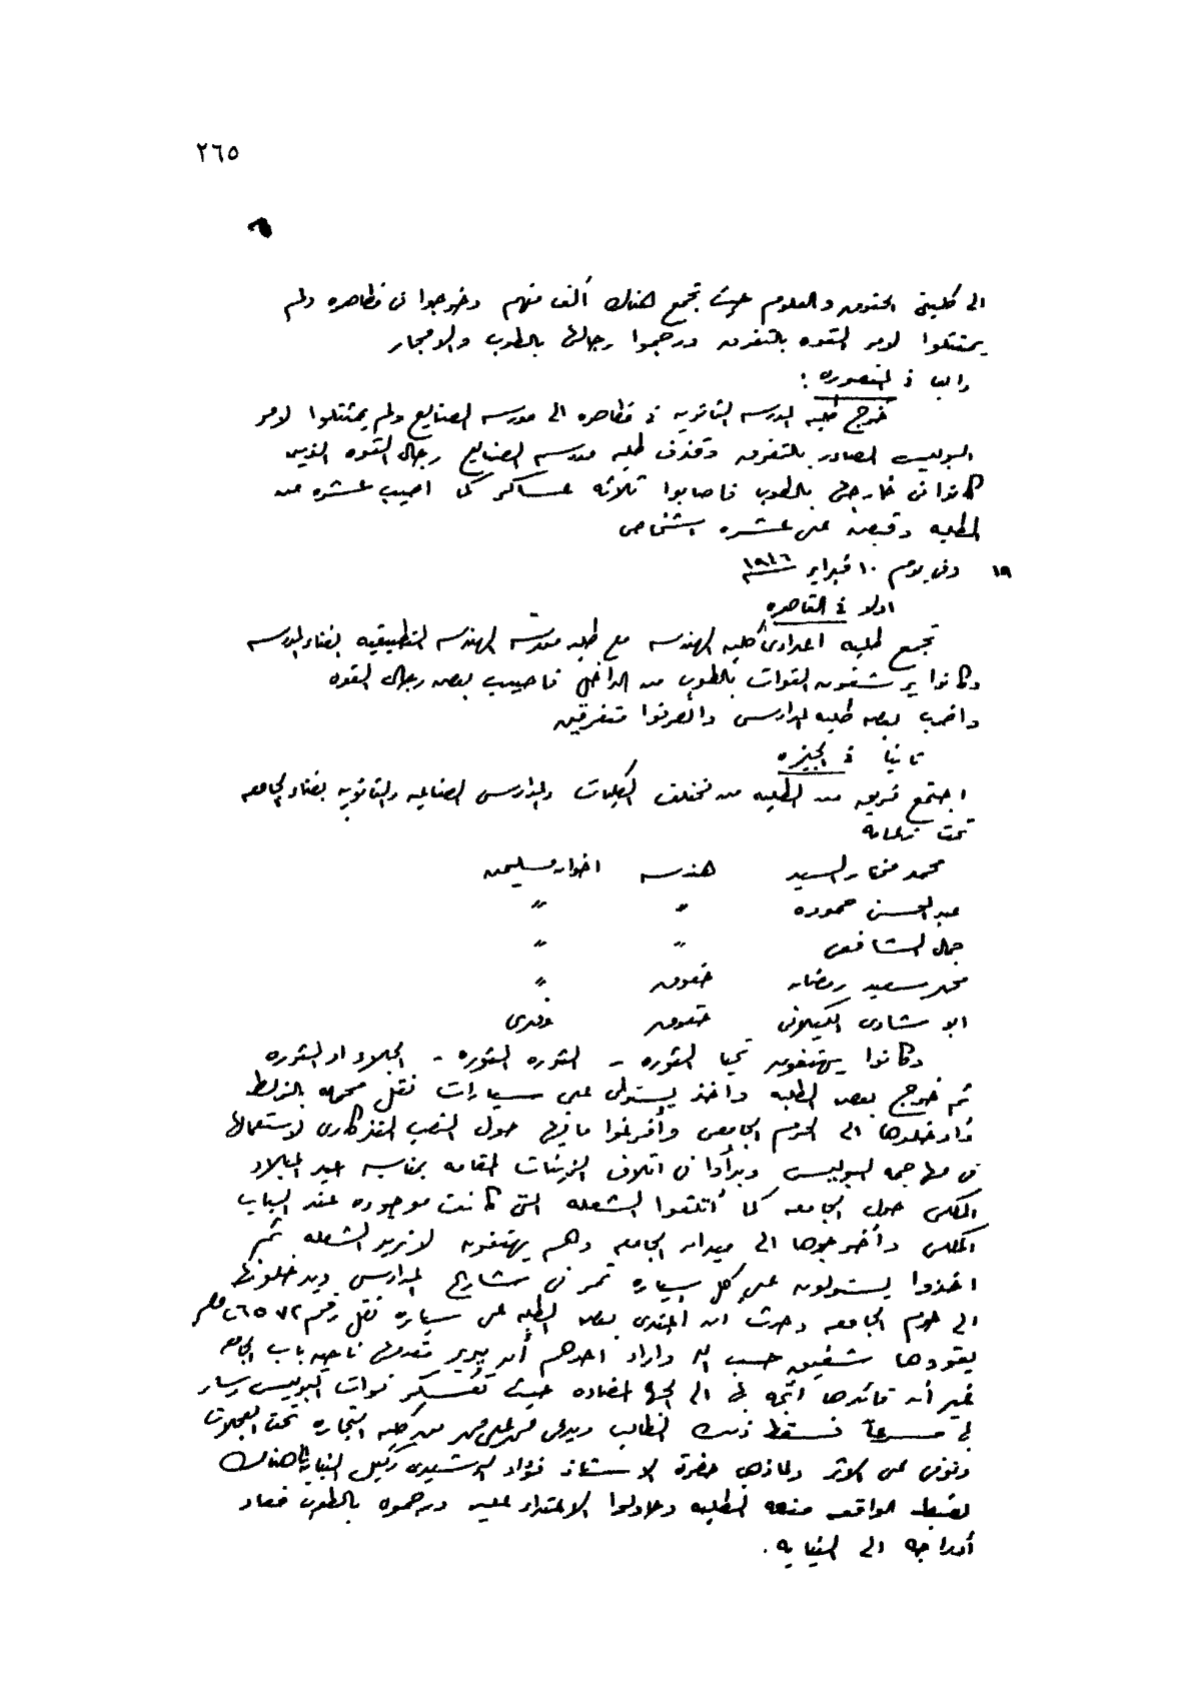 ٢٦٥
٦
الى كليتى الحقوق والعلوم حيث تجمع هناك ألف منهم وخرجوا فى مظاهره ولم
يمتثلوا لامر القوه بالتفرق ورجموا رجالها بالطوب والاحجار
رابعا فى المنصوره :
خرج طلبه المدرسه الثانويه فى مظاهره الى مدرسه الصنايع ولم يمتثلوا لامر
البوليس الصادر بالتفرق وقذف طلبه مدرسه الصنايع رجال القوه الذين
كانوا فى خارجها بالطوب فاصابوا ثلاثه عساكر كما اصيب عشره من
الطلبه وقبض على عشره اشخاص
١٩ وفى يوم ١٠ فبراير ١٩٤٦
اولا فى القاهره
تجمع طلبه اعدادى كليه الهندسه مع طلبه مدرسة الهندسه التطبيقيه بفناء المدرسه
وكانوا يرشقون القوات بالطوب من الداخل فاصيب بعض رجال القوه
واضرب بعض طلبه المدارس وانصرفوا متفرقين
ثانيا فى الجيزه
اجتمع فريق من الطلبه من مختلف الكليات والمدارس الصناعيه والثانويه بفناء الجامعه
تحت زعامه
محمد مختار السيد هندسه اخوان مسلمين
عبد المحسن حموده " "
جمال الشافعى " "
محمد سعيد رمضان حقوق "
ابو شادى الكيلانى حقوق وفدى
وكانوا يهتفون تحيا الثوره - الثوره الثوره - الجلاء او الثوره
ثم خرج بعض الطلبه واخذ يستولى على سيارات نقل محمله بالزلط
فأدخلوها الى الحرم الجامعى وأفرغوا ما فيها حول النصب التذكارى لاستعمالها
فى مهاجمه البوليس وبدأوا فى اتلاف الزينات المقامه بمناسبه عيد الميلاد
الملكى حول الجامعه كما أتلفوا الشعله التى كانت موجوده عند الباب
الملكى وأخرجوها الى ميدان الجامعه وهم يهتفون لا نريد الشعله ثم
اخذوا يستولون على كل سياره تمر فى شارع المدارس ويدخلونها
الى حرم الجامعه وحدث ان اعتدى بعض الطلبه على سياره نقل رقم ٦٥٧٢ مصر
يقودها شفيق حسب الله واراد احدهم أن يدير مقدمها ناحيه باب الجامعه
غير أن قائدها اتجه بها الى الجهه المضاده حيث تعسكر قوات البوليس وسار
بها مسرعاً فسقط ذلك الطالب ويدعى محمد على محمد من كليه التجاره تحت العجلات
وتوفى على الاثر ولما ذهب حضرة الاستاذ فؤاد الرشيدى وكيل النيابه هناك
لضبط الواقعه منعه الطلبه وحاولوا الاعتداء عليه ورجموه بالطوب فعاد
أدراجه الى النيابه .